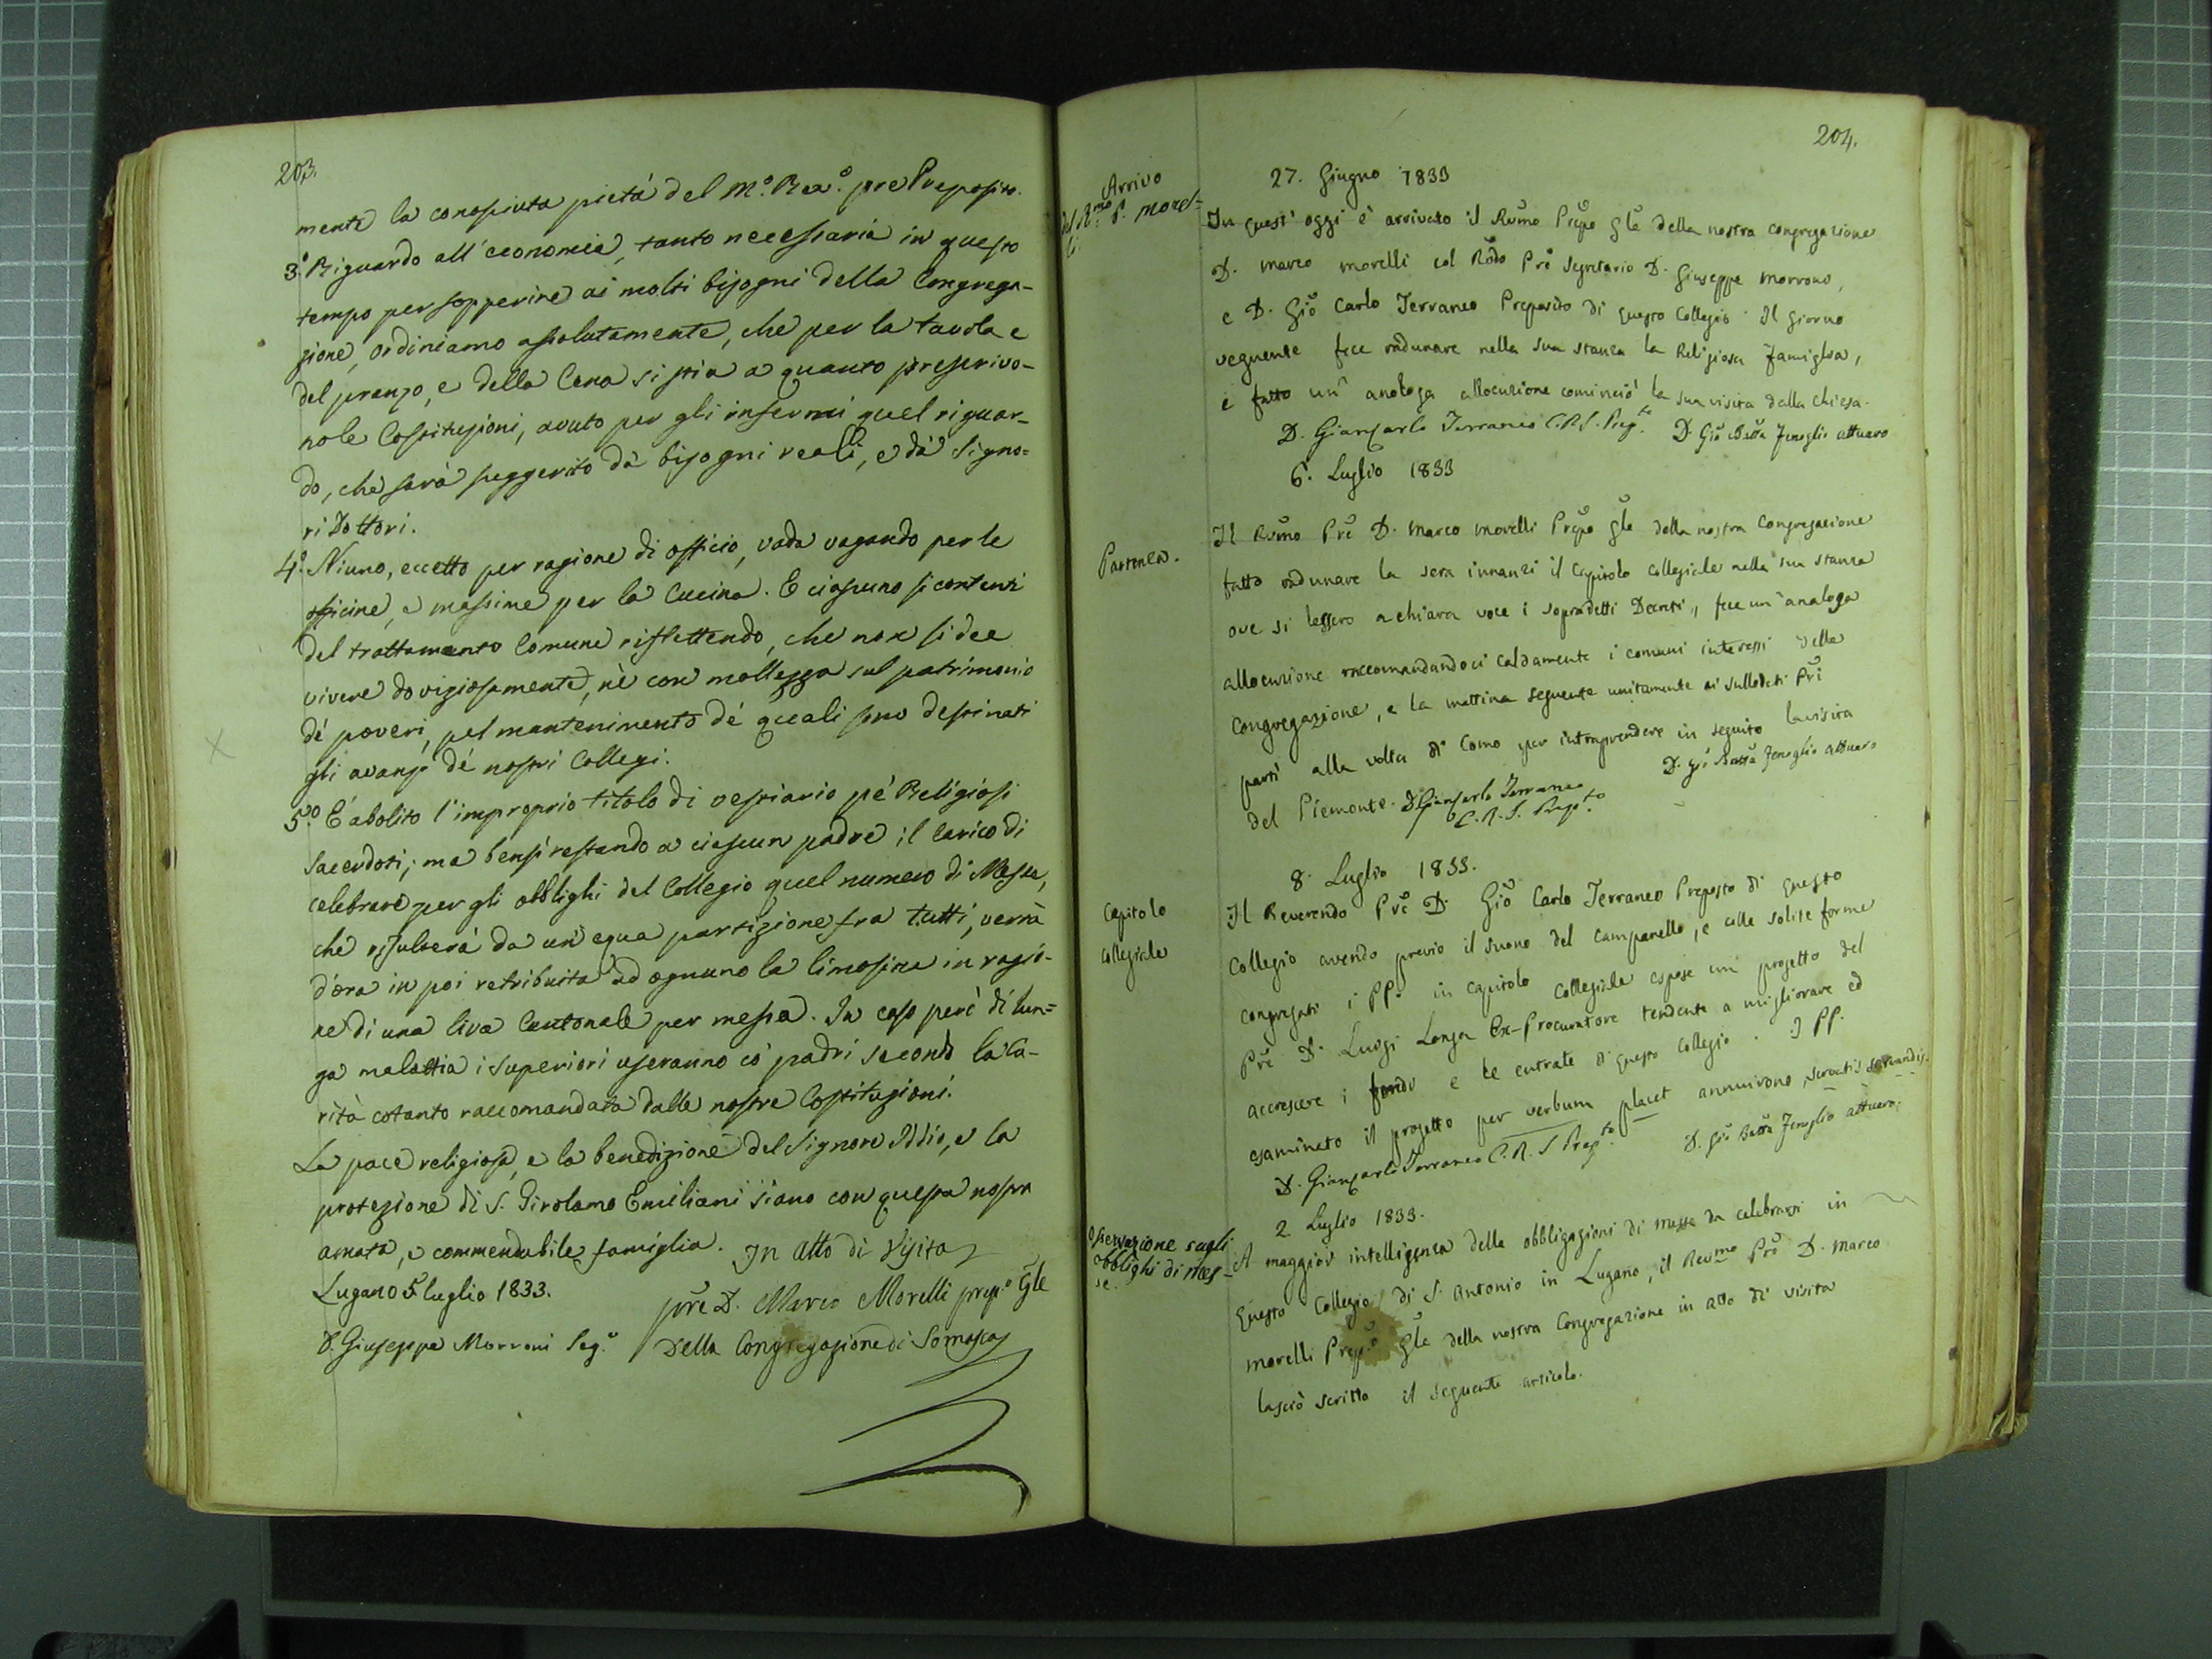 203.
mente la conosciuta pietà del M.º Rev.º pre Preposito.
3.º Riguardo all'economia, tanto necessaria in questo
tempo per sopperire ai molti bisogni della Congrega-
zione, ordiniamo assolutamente, che per la tavola e
del pranzo, e della Cena si stia a quanto prescrivo-
no le Costituzioni, avuto per gli infermi quel riguar-
do, che sarà suggerito dà bisogni reali, e dà Signo=
ri Dottori.
4.º Niuno, eccetto per ragione di officio, vada vagando per le
officine, e massime per la Cucina. E ciascuno si contenti
del trattamento Comune riflettendo, che non si dee
vivere doviziosamente, nè con mollezza sul patrimonio
dé poveri, pel mantenimento dé quali sono destinati
gli avanzi dé nostri Collegi.
5.º È abolito l'improprio titolo di vestiario pé Religiosi
Sacerdoti; ma bensì restando a ciascun padre il Carico di
celebrare per gli obblighi del Collegio quel numero di Messe,
che risulterà da un'equa partizione fra tutti, verrà
d'ora in poi retribuita ad ognuno la limosina in ragio-
ne di una lira Cantonale per messa. In caso però di lun=
ga malattia i Superiori useranno có padri secondo la Ca-
rità cotanto raccomandata dalle nostre Costituzioni.
La pace religiosa, e la benedizione del Signore Iddio, e la
protezione di S. Girolamo Emiliani siano con questa nostra
amata, e commendabile famiglia. In Atto di Visita
Lugano 5 luglio 1833.
pre D. Marco Morelli prep.º Gle
D. Giuseppe Morroni Seg.º Della Congregazione di Somasca
204.
27. Giugno 1833
Arrivo
del R.mo P. Morel=
li.
In quest'oggi è arrivato il Rvmo Prepo Gle della nostra congregazione
D. Marco Morelli col Rdo Pre Segretario D. Giuseppe Morroni,
e D. Gio Carlo Terraneo Preposito di questo Collegio. Il giorno
vegnente fece radunare nella sua stanza la Religiosa famiglia,
e fatto un'analoga allocuzione cominciò la sua visita dalla chiesa.
D. Giancarlo Terraneo C.R.S. Prep.to D. Gio Batta Fenoglio attuaro
6. Luglio 1833
Partenza.
Il Rvmo Pre D. Marco Morelli Prepo Gle della nostra Congregazione
fatto radunare la sera innanzi il Capitolo Collegiale nella sua stanza
ove si lessero a chiara voce i sopradetti Decreti, fece un'analoga
allocuzione raccomandandoci caldamente i comuni interessi della
Congregazione, e la mattina seguente unitamente ai sullodati Pri
partì alla volta di Como per intraprendere in seguito la visita
del Piemonte. D. Giancarlo Terraneo
C.R.S. Prep.to
D. Gio Batta Fenoglio attuaro
8. Luglio 1833.
Capitolo
Collegiale
Il Reverendo Pre D. Gio Carlo Terraneo Preposto di questo
Collegio avendo previo il suono del campanello, e colle solite forme
congregati i PP. in Capitolo Collegiale espose un progetto del
Pre D. Luigi Longa Ex-Procuratore tendente a migliorare ed
accrescere i fondi e le entrate di questo Collegio. I PP.
esaminato il progetto per verbum placet annuirono, servatis servandis.
D. Giancarlo Terraneo C.R.S. Prep.to D. Gio Batta Fenoglio attuaro.
2. Luglio 1833.
Osservazione sugli
obblighi di Mes=
se.
A maggior intelligenza delle obbligazioni di messe da celebrarsi in
questo Collegio di S. Antonio in Lugano, il Rev.mo Pre D. Marco
Morelli Prep.º Gle della nostra Congregazione in atto di visita
lasciò scritto il seguente articolo.